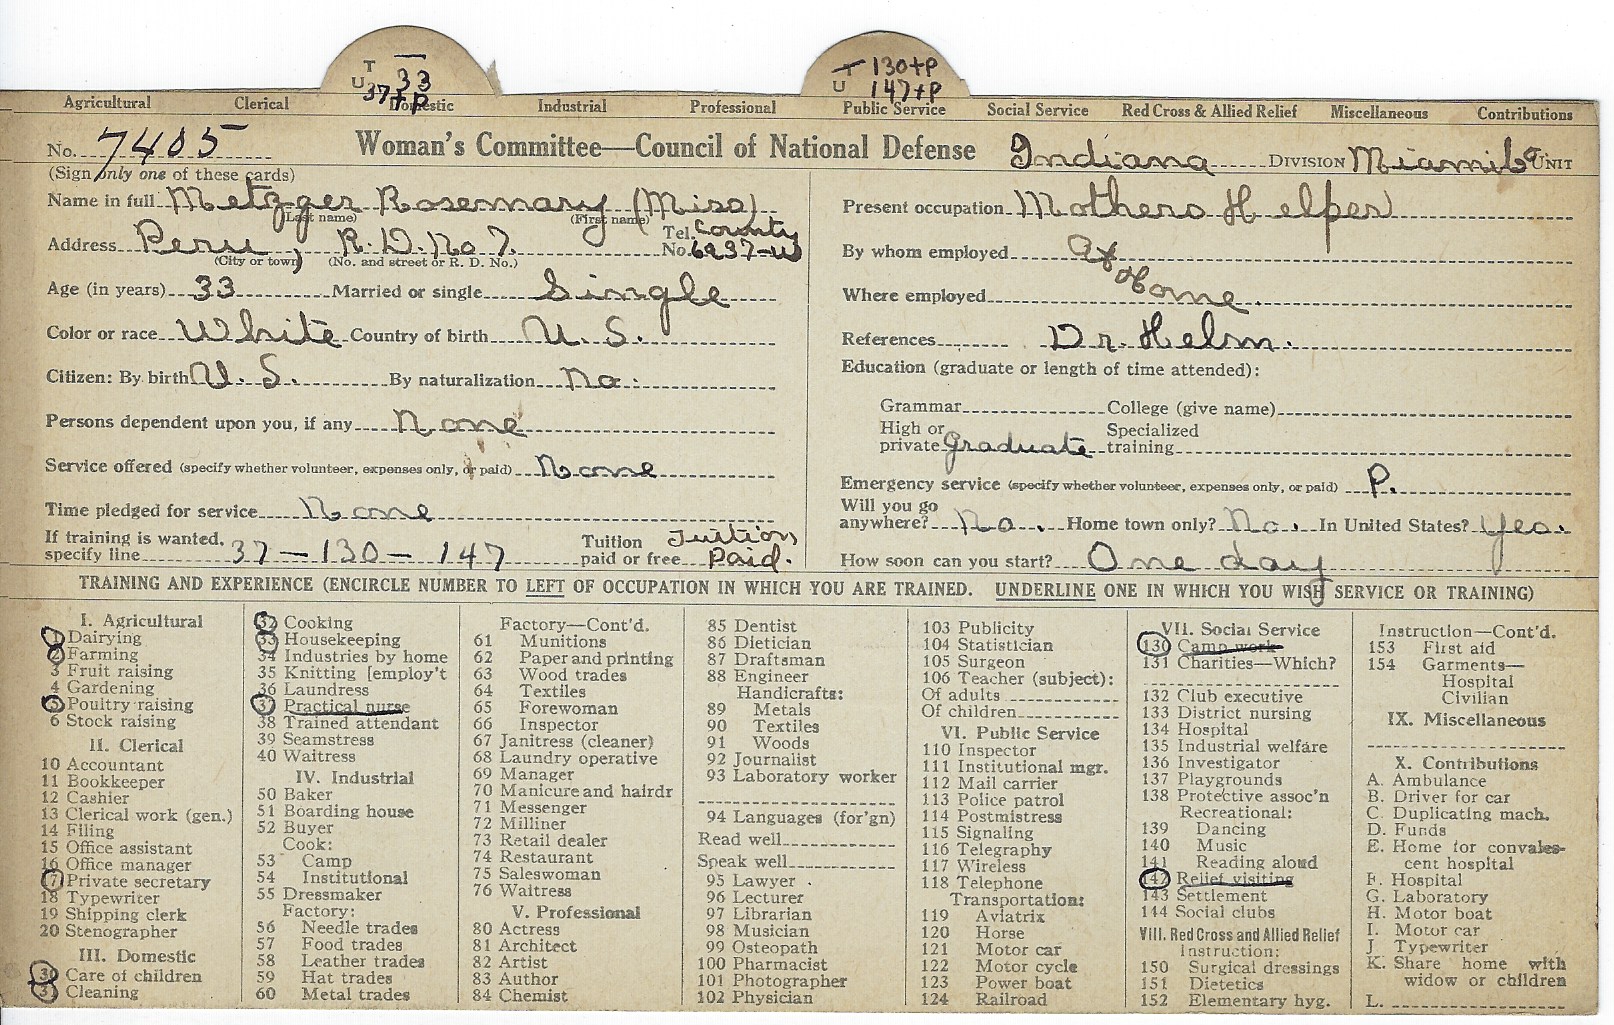 T —
U 33
37+P
T 130+P
U 147+P
Agricultural Clerical Domestic Industrial Professional Public Service Social Service Red Cross & Allied Relief Miscellaneous Contributions
No. 7405 Woman's Committee—Council of National Defense Indiana DIVISION Miami UNIT
(Sign only one of these cards)
Name in full Metzger Rosemary (Miss)
(Last name) (First name)
Address Peru, R.D. No 7. Tel. County No. 6237-W
(City or town) (No. and street or R. D. No.)
Age (in years) 33 Married or single Single
Color or race White Country of birth U. S.
Citizen: By birth U. S. By naturalization No.
Persons dependent upon you, if any None
Service offered (specify whether volunteer, expenses only, or paid) None
Time pledged for service None
If training is wanted, specify line 37 — 130 — 147 Tuition paid or free Tuition Paid.
Present occupation Mothers Helper
By whom employed At
Where employed Home.
References Dr. Helm.
Education (graduate or length of time attended):
Grammar College (give name)
High or private Graduate Specialized training
Emergency service (specify whether volunteer, expenses only, or paid) P.
Will you go anywhere? No. Home town only? No. In United States? Yes.
How soon can you start? One day
TRAINING AND EXPERIENCE (ENCIRCLE NUMBER TO LEFT OF OCCUPATION IN WHICH YOU ARE TRAINED. UNDERLINE ONE IN WHICH YOU WISH SERVICE OR TRAINING)
I. Agricultural
1 Dairying
2 Farming
3 Fruit raising
4 Gardening
5 Poultry raising
6 Stock raising
II. Clerical
10 Accountant
11 Bookkeeper
12 Cashier
13 Clerical work (gen.)
14 Filing
15 Office assistant
16 Office manager
17 Private secretary
18 Typewriter
19 Shipping clerk
20 Stenographer
III. Domestic
30 Care of children
31 Cleaning
32 Cooking
33 Housekeeping
34 Industries by home
35 Knitting [employ't
36 Laundress
37 Practical nurse
38 Trained attendant
39 Seamstress
40 Waitress
IV. Industrial
50 Baker
51 Boarding house
52 Buyer
Cook:
53 Camp
54 Institutional
55 Dressmaker
Factory:
56 Needle trades
57 Food trades
58 Leather trades
59 Hat trades
60 Metal trades
Factory—Cont'd.
61 Munitions
62 Paper and printing
63 Wood trades
64 Textiles
65 Forewoman
66 Inspector
67 Janitress (cleaner)
68 Laundry operative
69 Manager
70 Manicure and hairdr
71 Messenger
72 Milliner
73 Retail dealer
74 Restaurant
75 Saleswoman
76 Waitress
V. Professional
80 Actress
81 Architect
82 Artist
83 Author
84 Chemist
85 Dentist
86 Dietician
87 Draftsman
88 Engineer
Handicrafts:
89 Metals
90 Textiles
91 Woods
92 Journalist
93 Laboratory worker
94 Languages (for'gn)
Read well
Speak well
95 Lawyer
96 Lecturer
97 Librarian
98 Musician
99 Osteopath
100 Pharmacist
101 Photographer
102 Physician
103 Publicity
104 Statistician
105 Surgeon
106 Teacher (subject):
Of adults
Of children
VI. Public Service
110 Inspector
111 Institutional mgr.
112 Mail carrier
113 Police patrol
114 Postmistress
115 Signaling
116 Telegraphy
117 Wireless
118 Telephone
Transportation:
119 Aviatrix
120 Horse
121 Motor car
122 Motor cycle
123 Power boat
124 Railroad
VII. Social Service
130 Camp work
131 Charities—Which?
132 Club executive
133 District nursing
134 Hospital
135 Industrial welfare
136 Investigator
137 Playgrounds
138 Protective assoc'n
Recreational:
139 Dancing
140 Music
141 Reading aloud
142 Relief visiting
143 Settlement
144 Social clubs
VIII. Red Cross and Allied Relief
Instruction:
150 Surgical dressings
151 Dietetics
152 Elementary hyg.
Instruction—Cont'd.
153 First aid
154 Garments—
Hospital
Civilian
IX. Miscellaneous
X. Contributions
A. Ambulance
B. Driver for car
C. Duplicating mach.
D. Funds
E. Home for convales-
cent hospital
F. Hospital
G. Laboratory
H. Motor boat
I. Motor car
J. Typewriter
K. Share home with
widow or children
L.